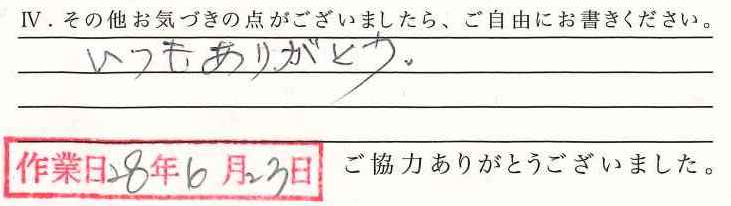 Ⅳ．その他お気づきの点がございましたら、ご自由にお書きください。
いつもありがとう。
作業日28年6月23日 ご協力ありがとうございました。